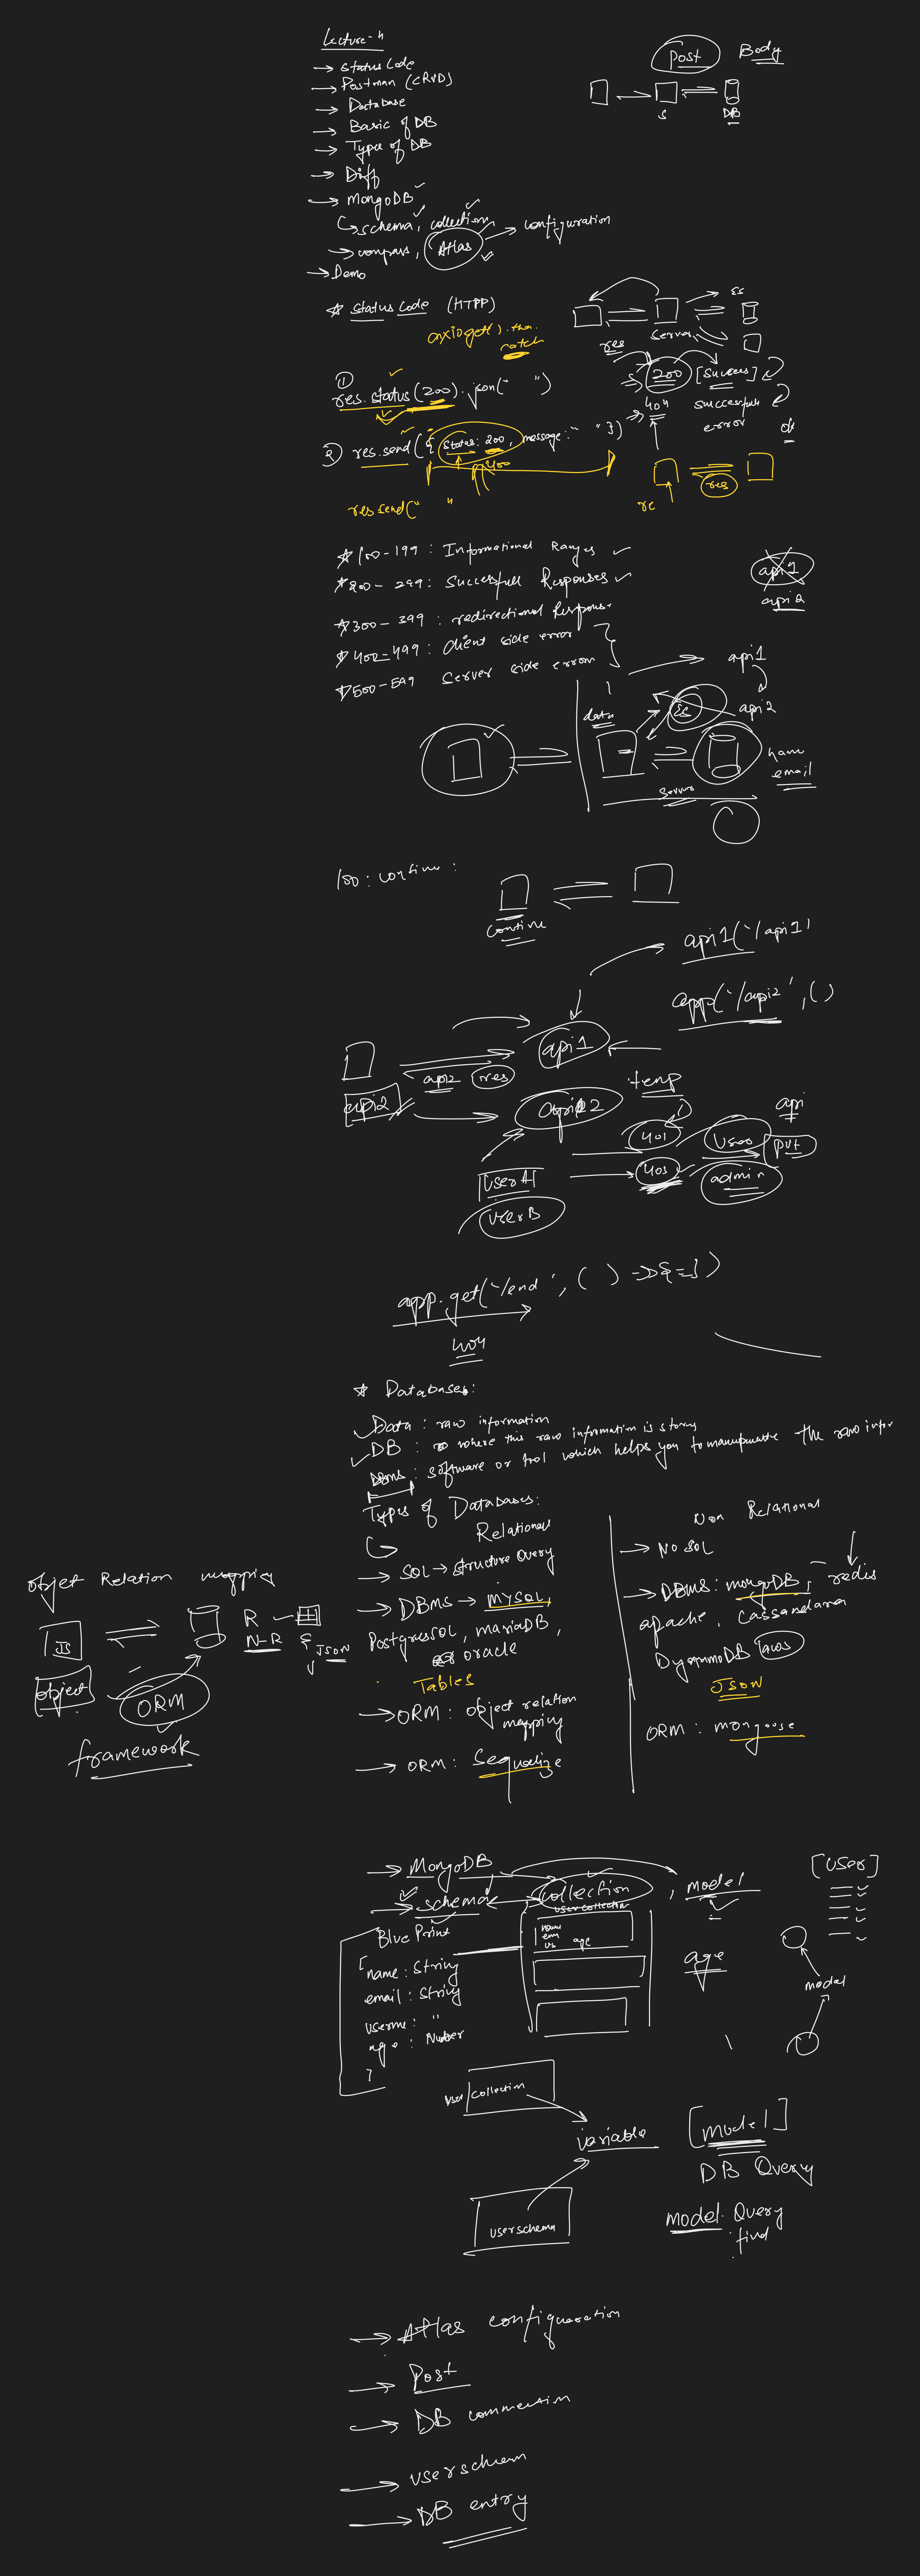 Lecture-4
→ Status Code
→ Postman (CRUD)
→ Database
→ Basic of DB
→ Type of DB
→ Diff
→ MongoDB
↳ schema, collection
→ compass, Atlas → configuration
→ Demo
Post Body
S DB
* Status Code (HTPP)
axios get().then.
catch
ES
Server
res
① res.status(200).json(" ")
200 [Success]
404 successfull
error
ok
② res.send({status: 200, message: " "})
400
res.send(" "
res
re
* 100-199: Informational Ranges
* 200-299: Successfull Responses
* 300-399: redirectional Response
* 400-499: Client side error
* 500-599 Server side error
api1
api2
api1
api2
data
ES
name
email
Server
100: continue:
Continue
api1('/api1)
app('/api2', ()
api1
api2 res
api2
api2
temp
401 User api
403 admin put
User A
User B
app.get('/end', ( ) => {=})
404
* Databases:
Data: raw information
DB: where this raw information is storing
DBMS: software or tool which helps you to manupunate the raw infor
Types of Databases:
Relational
→ SQL → Structure Query
→ DBMS → MYSQL,
PostgresSQL, mariaDB,
oracle
Tables
→ ORM: object relation
mapping
→ ORM: Sequalize
Non Relational
→ No SQL
→ DBMS: mongoDB, redis
apache, Cassandara
DynammoDB aws
JSON
ORM: mongoose
Objet Relation mapping
JS R
N-R JSON
object ORM
framework
→ MongoDB
→ schema collection, model
Blue Print
name: String
email: String
age: Number
user collection
name
age
age
[User]
model
user collection
variable [model]
DB Query
userschema
model. Query
find
→ Atlas configuaration
→ Post
→ DB connection
→ userschem
→ DB entry